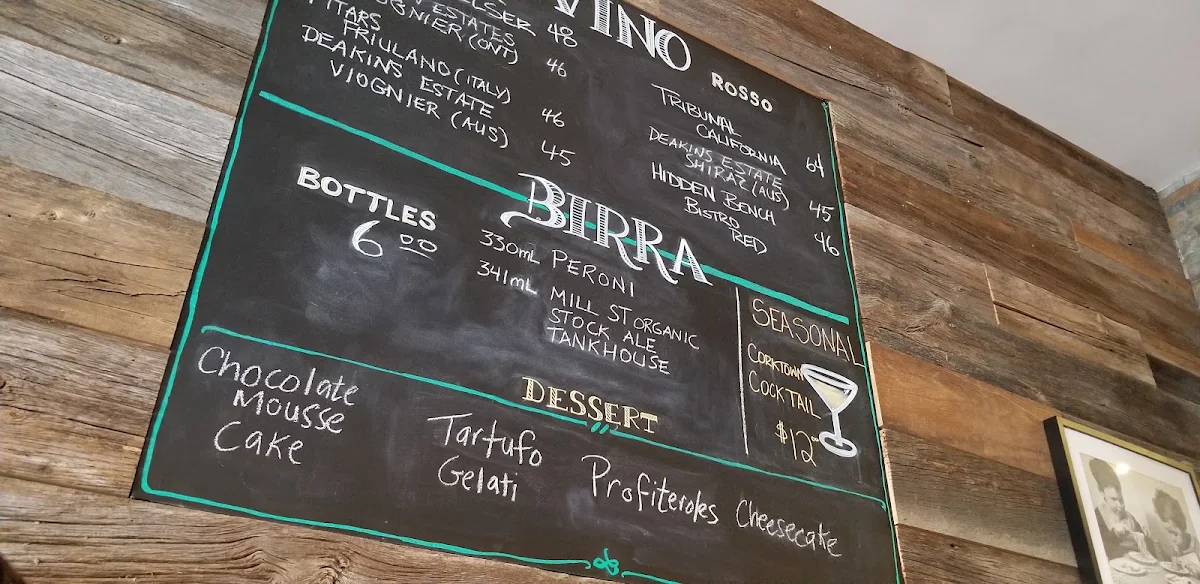 VINO
48
ESTATES
VIOGNIER (ONT) 46
PITARS
FRIULANO (ITALY) 46
DEAKINS ESTATE
VIOGNIER (AUS) 45
ROSSO
TRIBUNAL
CALIFORNIA 64
DEAKINS ESTATE
SHIRAZ (AUS) 45
HIDDEN BENCH
BISTRO
RED 46
BIRRA
BOTTLES
6 00
330mL PERONI
341mL MILL ST ORGANIC
STOCK ALE
TANKHOUSE
SEASONAL
CORKTOWN
COCKTAIL
$12
DESSERT
Chocolate
Mousse
Cake
Tartufo
Gelati
Profiteroles
Cheesecake